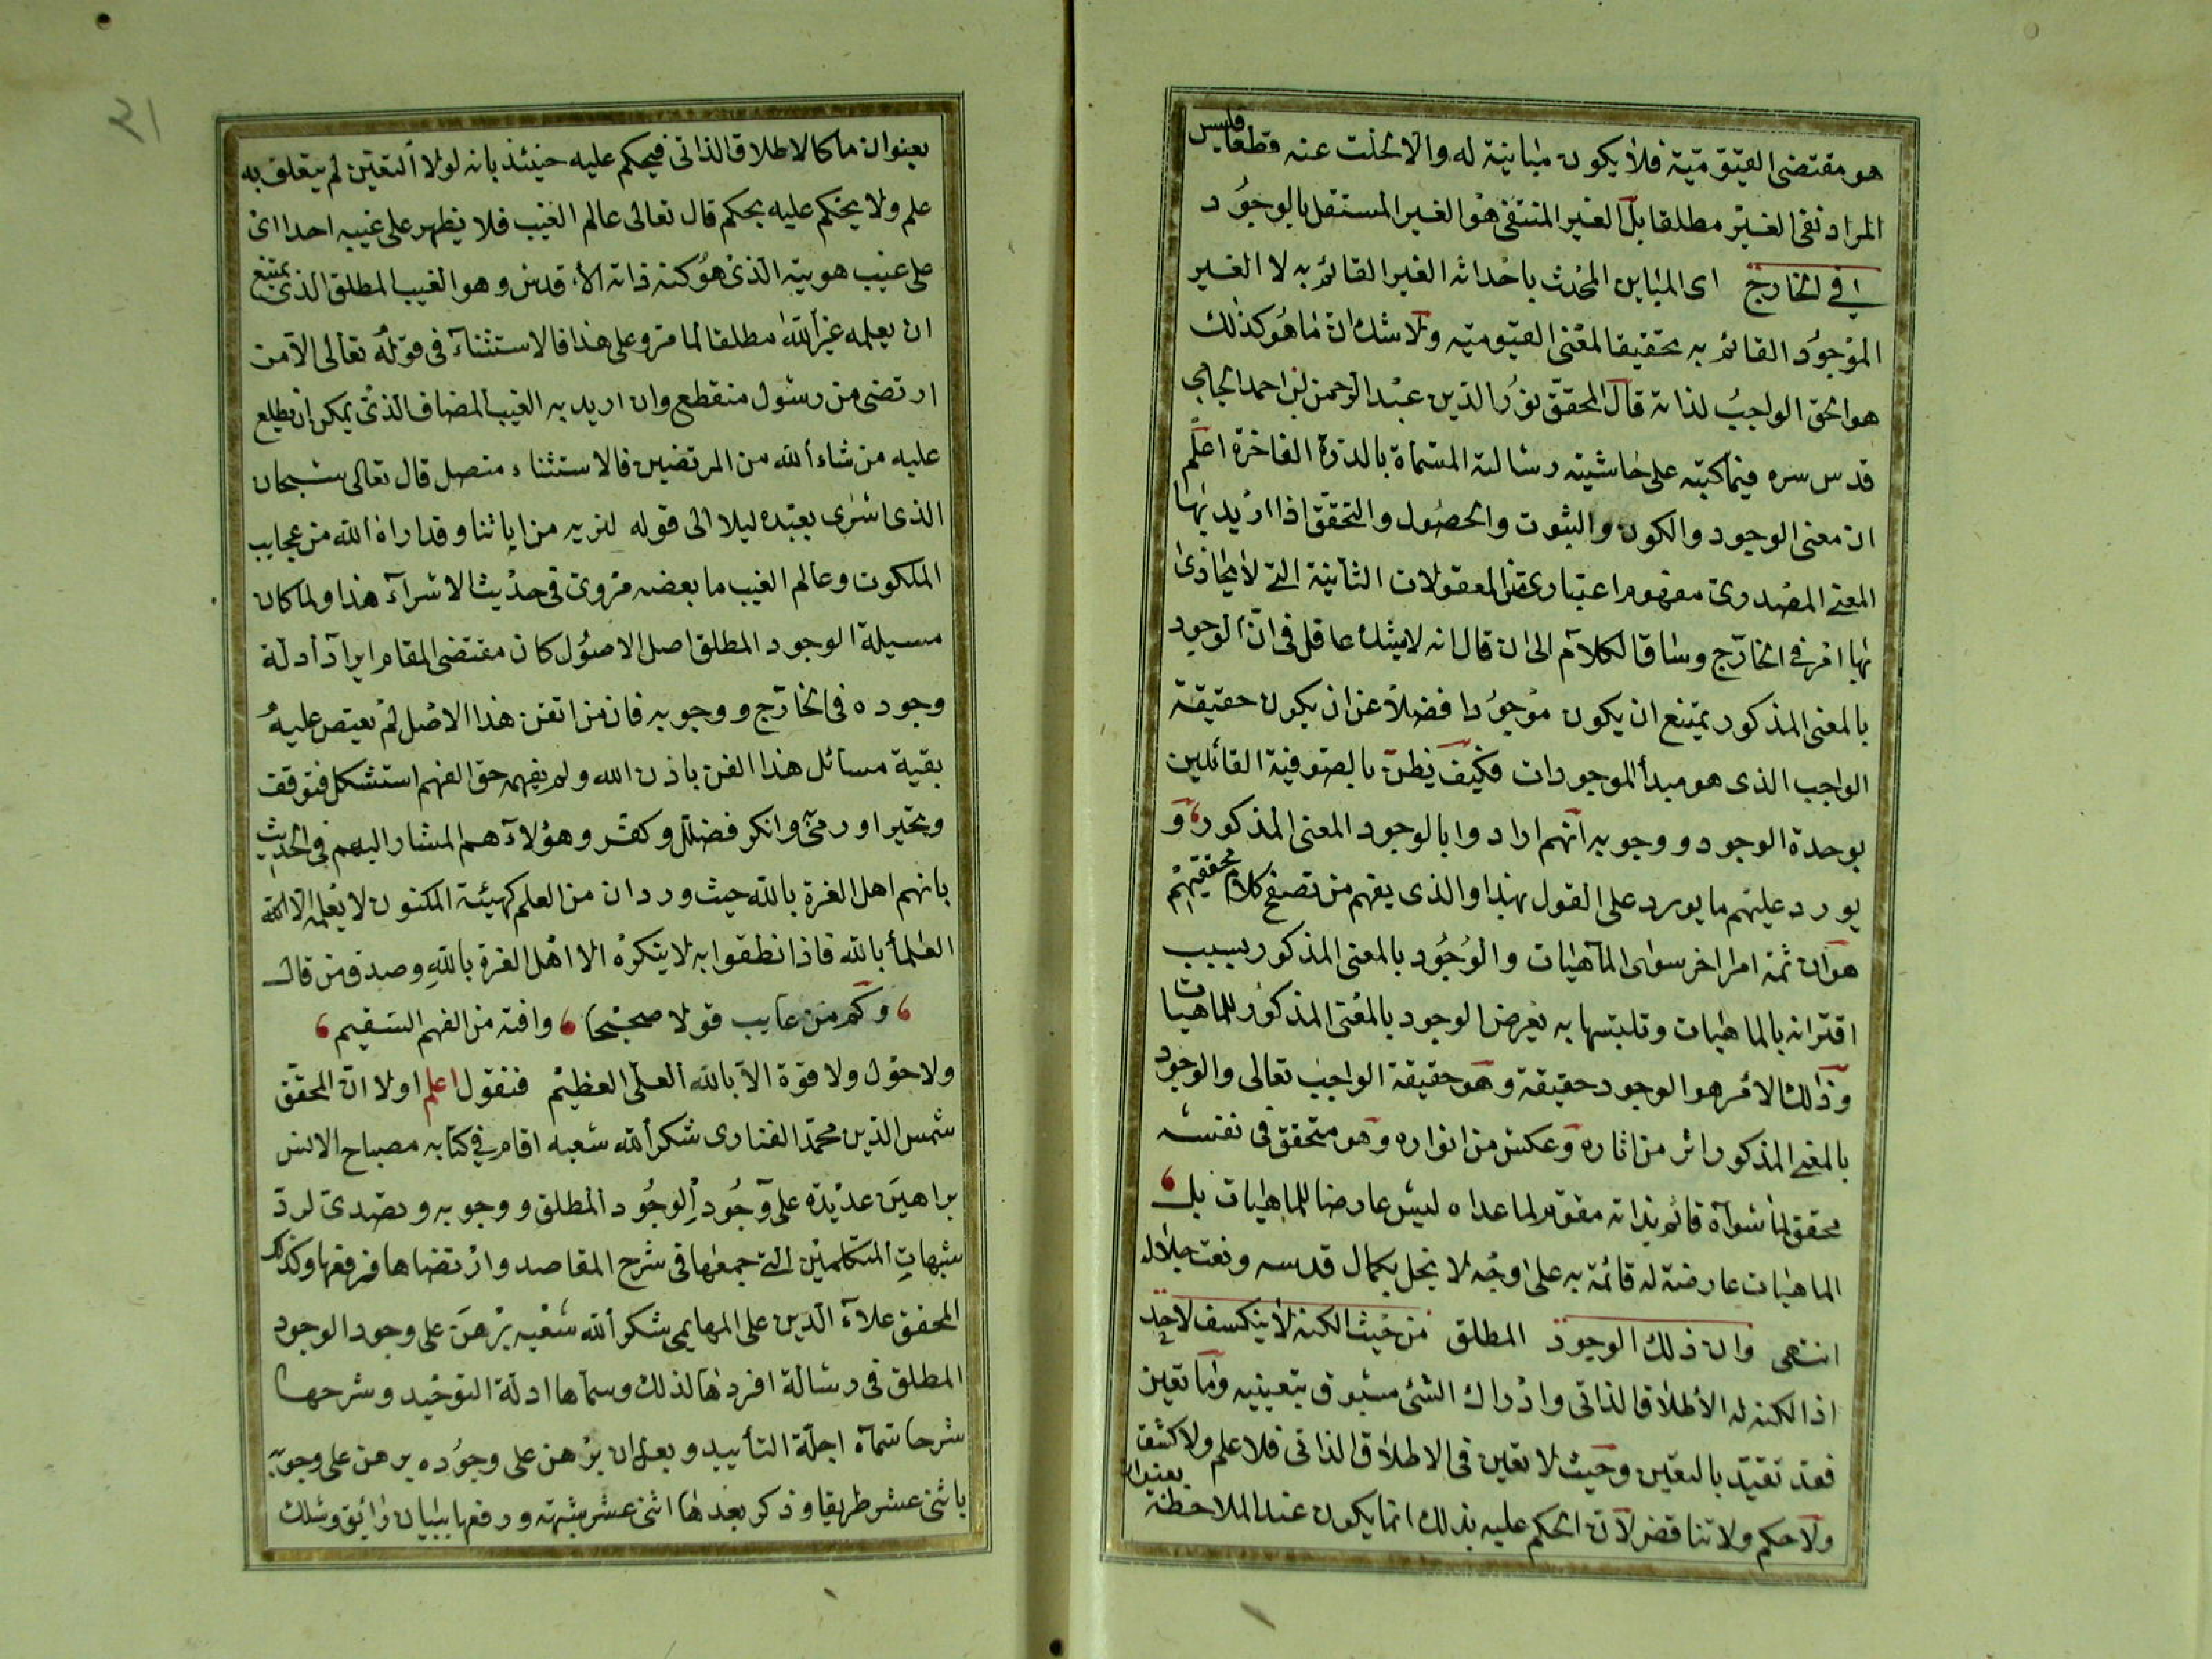 هو مقتضى القيّوميّة فلا يكون مباينة له والا لخلت عنه قطعا فليس
المراد نفى الغير مطلقا بل الغير المنتفى هو الغير المستقل بالوجود
في الخارج اى المباين المحدث باحداثه الغير القائم به لا الغير
الموجود القائم به تحقيقا لمعنى القيّوميّه ولا شك ان ما هو كذلك
هو الحق الواجب لذاته قال المحقّق نور الدّين عبد الرحمن بن احمد الجامى
قدس سره فيما كتبه على حاشيته رسالته المسمّاة بالدرة الفاخرة اعلم
ان معنى الوجود والكون والثبوت والحصول والتحقّق اذا اريد بها
المعنى المصدرى مفهوم اعتبارى من المعقولات الثانية التى لا يحاذى
بها امر في الخارج وساق الكلام الى ان قال انه لا يشك عاقل فى انّ الوجود
بالمعنى المذكور يمتنع ان يكون موجودا فضلا عن ان يكون حقيقة
الواجب الذى هو مبدأ الموجودات فكيف يظنّ بالصّوفية القائلين
بوحدة الوجود ووجوبه انّهم ارادوا بالوجود المعنى المذكور و
يورد عليهم ما يورد على القول بهذا والذى يفهم من تصفح كلام محققيهم
هو ان ثمة امرا اخر سوى الماهيات والوجود بالمعنى المذكور بسبب
اقترانه بالماهيات وتلبّسها به يعرض الوجود بالمعنى المذكور للماهيات
وذلك الامر هو الوجود حقيقة وهو حقيقة الواجب تعالى والوجود
بالمعنى المذكور اثر من اثاره وعكس من انواره وهو متحقق فى نفسه
محقق لما سواه قائم بذاته مقوّم لما عداه ليس عارضا للماهيات بل
الماهيات عارضة له قائمة به على وجه لا يخل بكمال قدسه ونعت جلاله
انتهى وان ذلك الوجود المطلق من حيث الكنه لا ينكشف لاحد
اذ الكنه له الاطلاق الذاتى وادراك الشئ مسبوق بتعيينه وما تعين
فقد تقيّد بالتعين وحيث لا تعين فى الاطلاق الذاتى فلا علم ولا كشف
ولا حكم ولا تناقض لانّ الحكم عليه بذلك انما يكون عند الملاحظة
بعنوان
٢١
بعنوان ما كالاطلاق الذاتى فيحكم عليه حينئذ بانه لولا التعيّن لم يتعلق به
علم ولا يحكم عليه بحكم قال تعالى عالم الغيب فلا يظهر على غيبه احدا اى
على غيب هويته الذى هو كنه ذاته الاقدس وهو الغيب المطلق الذى يمتنع
ان يعلمه غير الله مطلقا لما مر وعلى هذا فالاستثناء فى قوله تعالى الا من
ارتضى من رسول منقطع وان اريد به الغيب المضاف الذى يمكن ان يطلع
عليه من شاء الله من المرتضين فالاستثناء متصل قال تعالى سبحان
الذى اسرى بعبده ليلا الى قوله لنريه من اياتنا وقد اراه الله من عجايب
الملكوت وعالم الغيب ما بعضه مروى فى حديث الاسرآء هذا ولما كان
مسيلة الوجود المطلق اصل الاصول كان مقتضى المقام ايراد أدلة
وجوده فى الخارج ووجوبه فان من اتقن هذا الاصل لم يعتص عليه
بقية مسائل هذا الفن باذن الله ولم يفهمه حق الفهم استشكل فتوقف
وتحيّر او رمى وانكر فضلّل وكفّر وهؤلاء هم المشار اليهم في الحديث
بانهم اهل الغرة بالله حيث ورد ان من العلم كهيئة المكنون لا يعلمه الا الله
العلمأ بالله فاذا نطقوا به لا ينكره الا اهل الغرة بالله وصدق من قال
وكم من عايب قولا صحيحا وافته من الفهم السّقيم
ولا حول ولا قوة الا بالله العلى العظيم فنقول اعلم اولا انّ المحقّق
شمس الدّين محمّد الفنارى شكر الله سعيه اقام في كتابه مصباح الانس
براهين عديدة على وجود الوجود المطلق ووجوبه وتصدى لردّ
شبهات المتكلمين التى جمعها فى شرح المقاصد وارتضاها فرفعها وكذلك
المحقق علاء الدين على المهايمى شكر الله سعيه برهن على وجود الوجود
المطلق فى رسالة افردها لذلك وسماها ادلة التوحيد وشرحها
شرحا سمّاه اجلّة التأييد وبعد ان برهن على وجوده برهن على وجوبه
باثنى عشر طريقا وذكر بعدها اثنى عشر شبهة ورفعها ببيان رائق وسلك